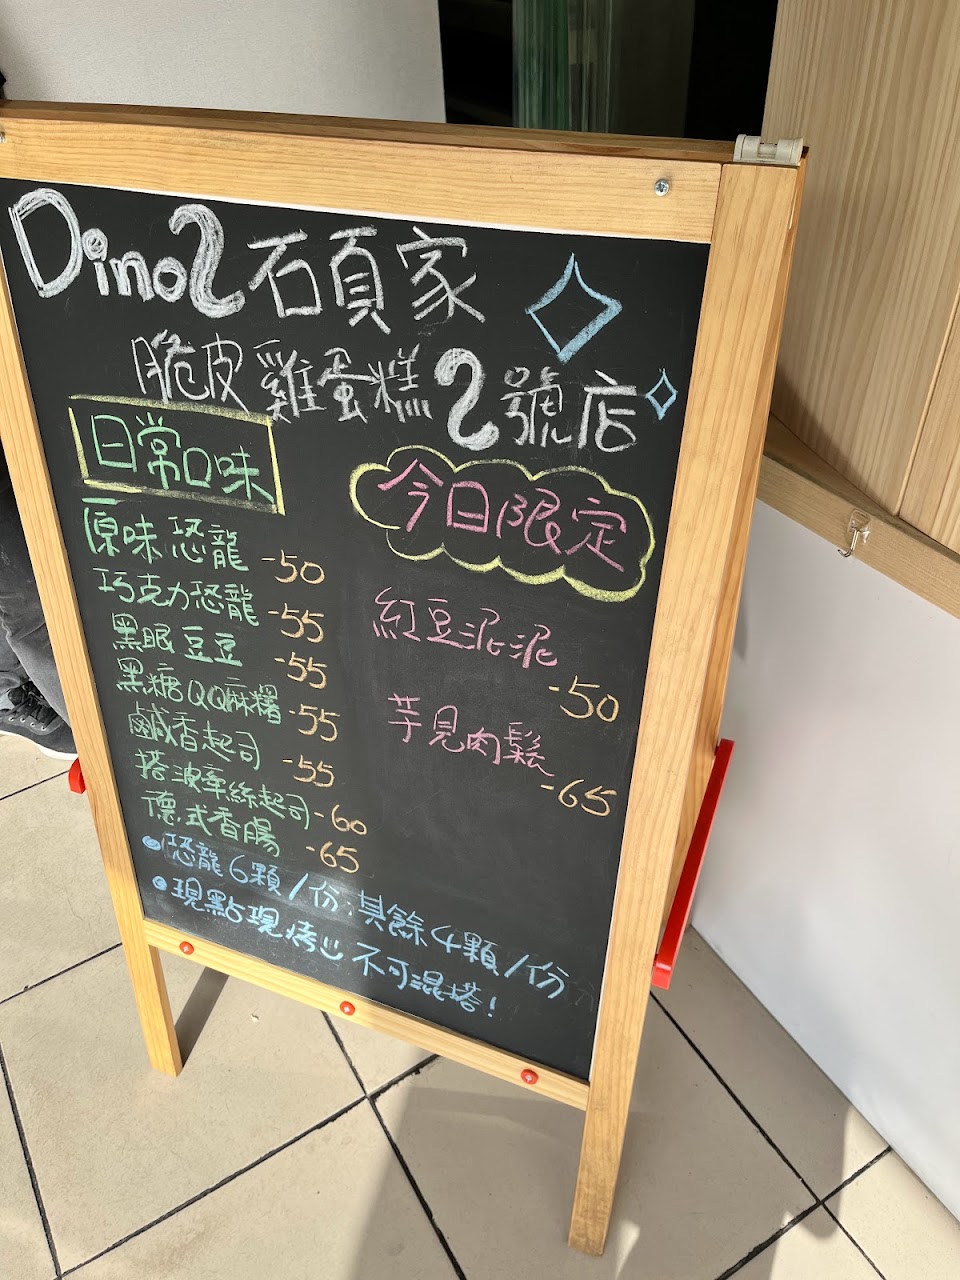 Dino2 石頁家
脆皮雞蛋糕2號店
日常口味
原味恐龍 -50
巧克力恐龍 -55
黑眼豆豆 -55
黑糖QQ麻糬 -55
鹹香起司 -55
搭波牽絲起司 -60
德式香腸 -65
今日限定
紅豆泥泥 -50
芋見肉鬆 -65
•恐龍6顆/份,其餘4顆/份
•現點現烤 不可混搭!